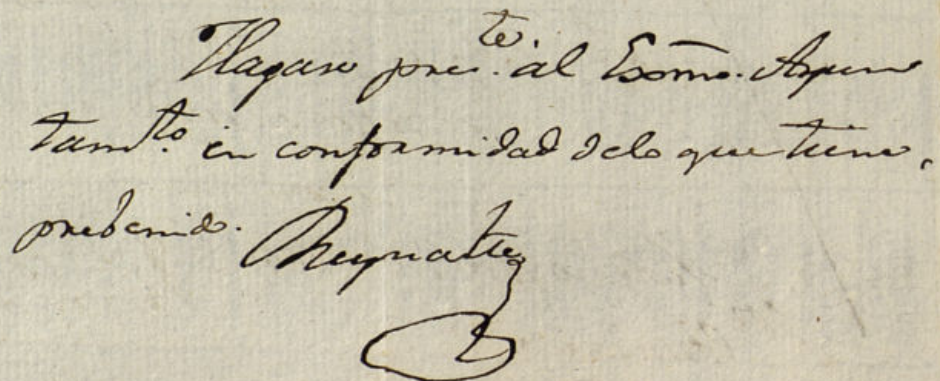 Hagase pres.te al Exõmo. Ayun
tam.to en conformidad de lo que tiene
prebenido.